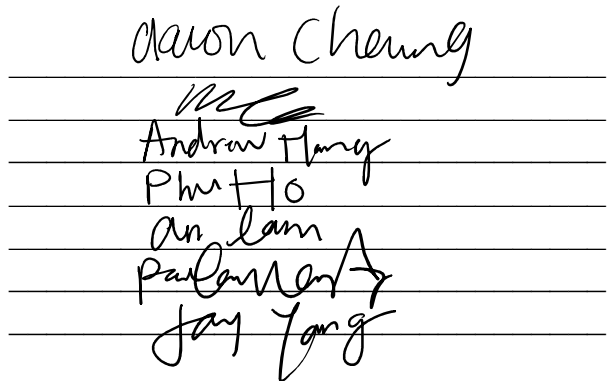 aaron Cheung
Andrew Hang
Phu Ho
an lam
Jay Yang